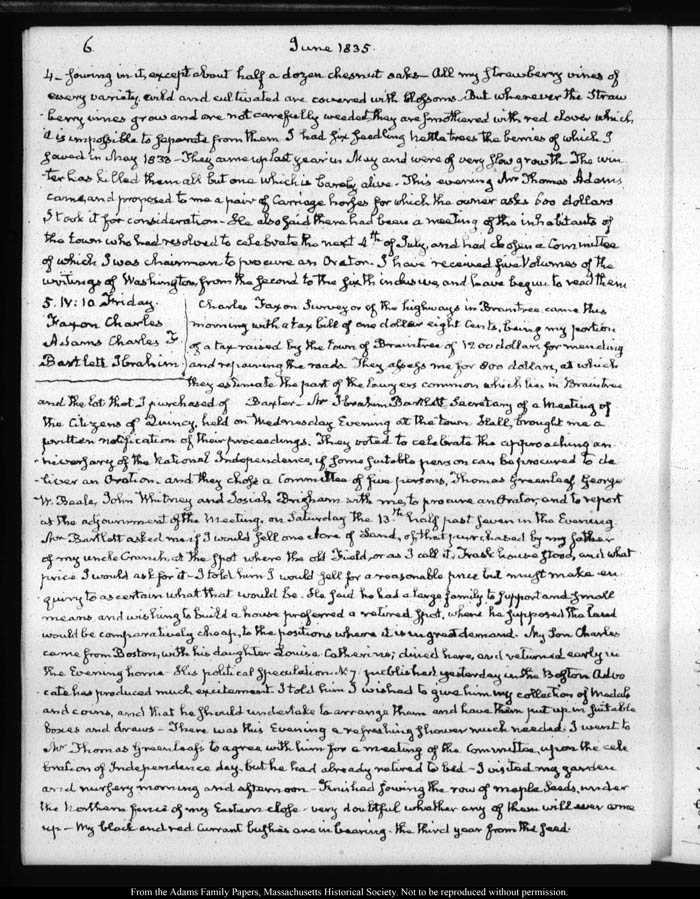 6
June 1835.
4. sowing in it, except about half a dozen chesnut oaks – All my strawberry vines of
every variety, wild and cultivated are covered with blossoms. But wherever the Straw
berry vines grow and are not carefully weeded they are smothered with red clover which
it is impossible to separate from them. I had six seedling nettle trees the berries of which I
sowed in May 1833 – They came up last year in May and were of very slow growth. The win
ter has killed them all but one which is barely alive. This evening Mr Thomas Adams
came, and proposed to me a pair of Carriage horses for which the owner asks 600 dollars
I took it for consideration. He also said there had been a meeting of the inhabitants of
the town who had resolved to celebrate the next 4th of July, and had chosen a Committee
of which I was chairman to procure an Orator. I have received five Volumes of the
writings of Washington, from the second to the sixth inclusive, and have begun to read them
5. IV:10 Friday.
Faxon Charles
Adams Charles F.
Bartlett Ibrahim
Charles Faxon Surveyor of the highways in Braintree came this
morning with a tax bill of one dollar eight Cents, being my portion
of a tax raised by the town of Braintree of 1200 dollars for mending
and repairing the roads. They assess me for 800 dollars, at which
they estimate the part of the Lawyers common which lies in Braintree
and the lot that I purchased of Baxter – Mr Ibrahim Bartlett, Secretary of a meeting of
the Citizens of Quincy, held on Wednesday Evening at the town Hall, brought me a
written notification of their proceedings. They voted to celebrate the approaching an
niversary of the National Independence, if some suitable person can be procured to de
liver an Oration, and they chose a Committee of five persons, Thomas Greenleaf George
W. Beale, John Whitney and Josiah Brigham with me, to procure an Orator, and to report
at the adjournment of the meeting, on Saturday the 13th half past seven in the Evening
Mr Bartlett asked me if I would sell one Acre of Land, of that purchased by my father
of my uncle Cranch, at the spot where the old Field, or as I call it, Trask house stood, and what
price I would ask for it – I told him I would sell for a reasonable price but must make en
quiry to ascertain what that would be. He said he had a large family to support and small
means, and wishing to build a house preferred a retired spot, where he supposed the land
would be comparatively cheap, to the positions where it is in great demand. My Son Charles
came from Boston, with his daughter Louisa Catherine; dined here, and returned early in
the Evening home. His political speculation N. 7. published yesterday in the Boston Advo
cate has produced much excitement. I told him I wished to give him my collection of Medals
and coins, and that he should undertake to arrange them and have them put up in suitable
boxes and draws – There was this Evening a refreshing shower much needed. I went to
Mr Thomas Greenleaf's to agree with him for a meeting of the Committee, upon the cele
bration of Independence day. but he had already retired to bed – I visited my garden
and nursery morning and afternoon – Finished sowing the row of maple seeds, under
the Northern fence of my Eastern close – very doubtful whether any of them will ever come
up – My black and red Currant bushes are in bearing. the third year from the seed.
From the Adams Family Papers, Massachusetts Historical Society. Not to be reproduced without permission.